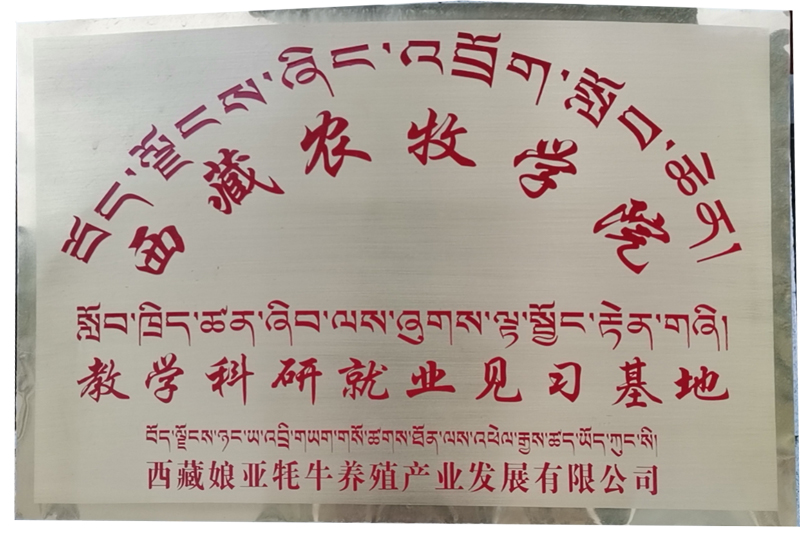 བོད་ལྗོངས་ཞིང་འབྲོག་སློབ་ཆེན།
西藏农牧学院
སློབ་ཁྲིད་ཚན་ཞིབ་ལས་ཞུགས་ལྟ་སྦྱོང་རྟེན་གཞི།
教学科研就业见习基地
བོད་ལྗོངས་ཉང་ཡ་འབྲི་གཡག་གསོ་ཚགས་ཐོན་ལས་འཕེལ་རྒྱས་ཚད་ཡོད་ཀུང་སི།
西藏娘亚牦牛养殖产业发展有限公司